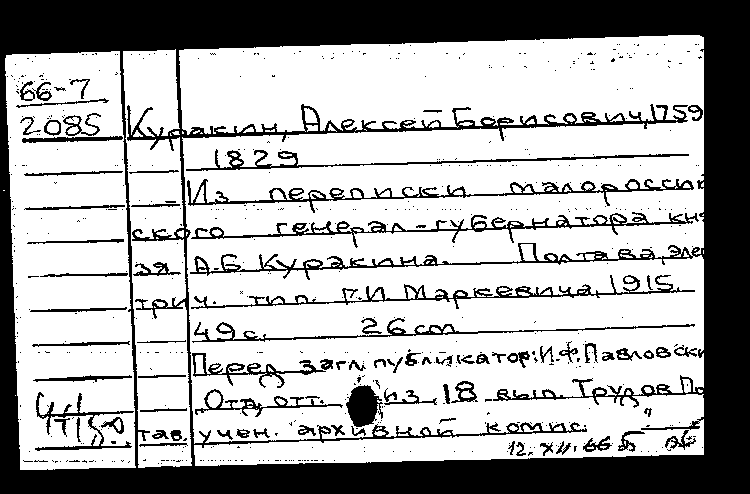 66-7
2085
Куракин, Алексей Борисович, 1759
1829
Из переписки малоросси
ского генерал-губернатора кня
зя А.Б. Куракина. Полтава, элек
трич. тип. Г.И. Маркевича, 1915.
49 с. 26 cm
Перед загл. публикатор: И.Ф. Павловски
"Отд. отт. из 18 вып. Трудов По
тав. учен. архивной комис."
12.XII.66